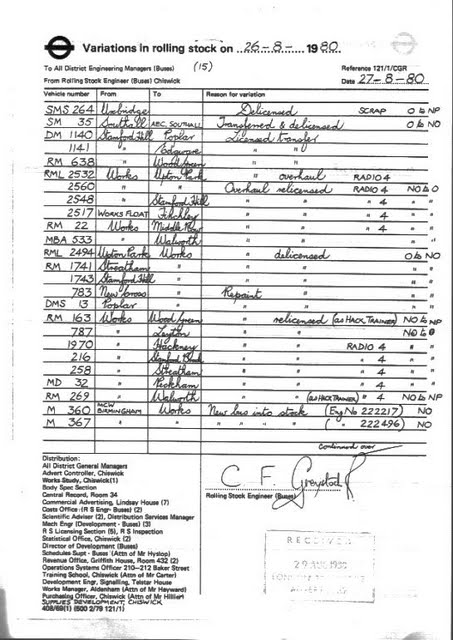 Variations in rolling stock on 26-8- 1980
To All District Engineering Managers (Buses) (15) Reference 121/1/CGR
From Rolling Stock Engineer (Buses) Chiswick Date 27-8-80
Vehicle number From To Reason for variation
SMS 264 Uxbridge Delicensed SCRAP O to NP
SM 35 Southall AEC, SOUTHALL Transferred & delicensed O to NO
DM 1140 Stamford Hill Poplar Licensed transfer
1141 " Edgware " "
RM 638 " Wood Green " "
RML 2532 Works Upton Park " overhaul RADIO 4
2560 " " Overhaul relicensed RADIO 4 NO to O
2548 " Stamford Hill " " " 4 " "
2517 WORKS FLOAT Finchley " " " 4 " "
RM 22 Works Middle Row " " " 4 " "
MBA 533 " Walworth " " " "
RML 2494 Upton Park Works " delicensed O to NO
RM 1741 Streatham " " " " "
1743 Stamford Hill " " " " "
783 New Cross " Repaint " " "
DMS 13 Poplar " " " " "
RM 163 Works Wood Green " relicensed (as HACK TRAINER) NO to NP
787 " Leyton " " NO to O
1970 " Hackney " " RADIO 4 " "
216 " " " " 4 " "
258 " Streatham " " " 4 " "
MD 32 " Peckham " " " 4 " "
RM 269 " Walworth " " (as HACK TRAINER) " 4 NO to NP
M 360 MCW BIRMINGHAM Works New bus into stock (Eng No 222217) NO
M 367 " " " " " " ( " 222496) NO
Continued over
Distribution:
All District General Managers
Advert Controller, Chiswick
Works Study, Chiswick(1)
Body Spec Section
Central Record, Room 34
Commercial Advertising, Lindsay House (7)
Costs Office (R S Engr- Buses) (2)
Scientific Adviser (2), Distribution Services Manager
Mech Engr (Development - Buses) (3)
R S Licensing Section (5), R S Inspection
Statistical Office, Chiswick (2)
Director of Development (Buses)
Schedules Supt - Buses (Attn of Mr Hyslop)
Revenue Office, Griffith House, Room 432 (2)
Operations Systems Officer 210-212 Baker Street
Training School, Chiswick (Attn of Mr Carter)
Development Engr, Signalling, Telstar House
Works Manager, Aldenham (Attn of Mr Hayward)
Purchasing Officer, Chiswick (Attn of Mr Hillier)
SUPPLIES DEVELOPMENT, CHISWICK
408/69(1) (500 2/79 121/1)
C F
Rolling Stock Engineer (Buses)
RECEIVED
29 AUG 1980
LONDON